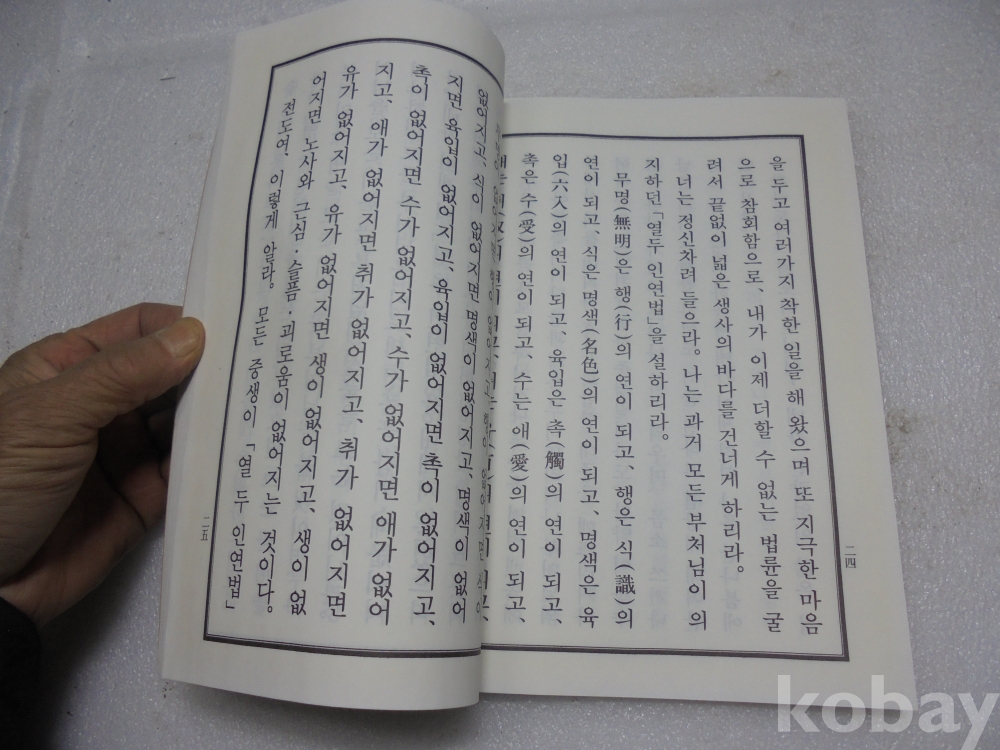 을 두고 여러가지 착한 일을 해 왔으며 또 지극한 마음
으로 참회함으로, 내가 이제 더할 수 없는 법륜을 굴
려서 끝없이 넓은 생사의 바다를 건너게 하리라.
너는 정신차려 들으라. 나는 과거 모든 부처님이 의
지하던 「열두 인연법」을 설하리라.
무명(無明)은 행(行)의 연이 되고, 행은 식(識)의
연이 되고, 식은 명색(名色)의 연이 되고, 명색은 육
입(六入)의 연이 되고, 육입은 촉(觸)의 연이 되고,
촉은 수(受)의 연이 되고, 수는 애(愛)의 연이 되고,
二四
없어지고, 식이 없어지면 명색이 없어지고, 명색이 없어
지면 육입이 없어지고, 육입이 없어지면 촉이 없어지고,
촉이 없어지면 수가 없어지고, 수가 없어지면 애가 없어
지고, 애가 없어지면 취가 없어지고, 취가 없어지면
유가 없어지고, 유가 없어지면 생이 없어지고, 생이 없
어지면 노사와 근심·슬픔·괴로움이 없어지는 것이다.
전도여, 이렇게 알라. 모든 중생이 「열 두 인연법」
二五
kobay